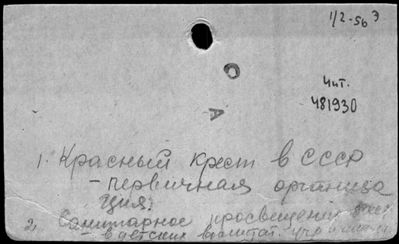 1/2-56 Э
О
А
Чит.
481930
1. Красный крест в СССР
- первичная организа
ция.
2. Санитарное просвещение
- в детских воспитат.